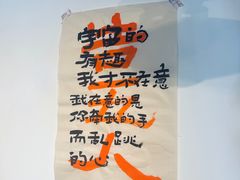 宇宙的
有趣
我才不在意
我在意的是
你牵我的手
而乱跳
的心